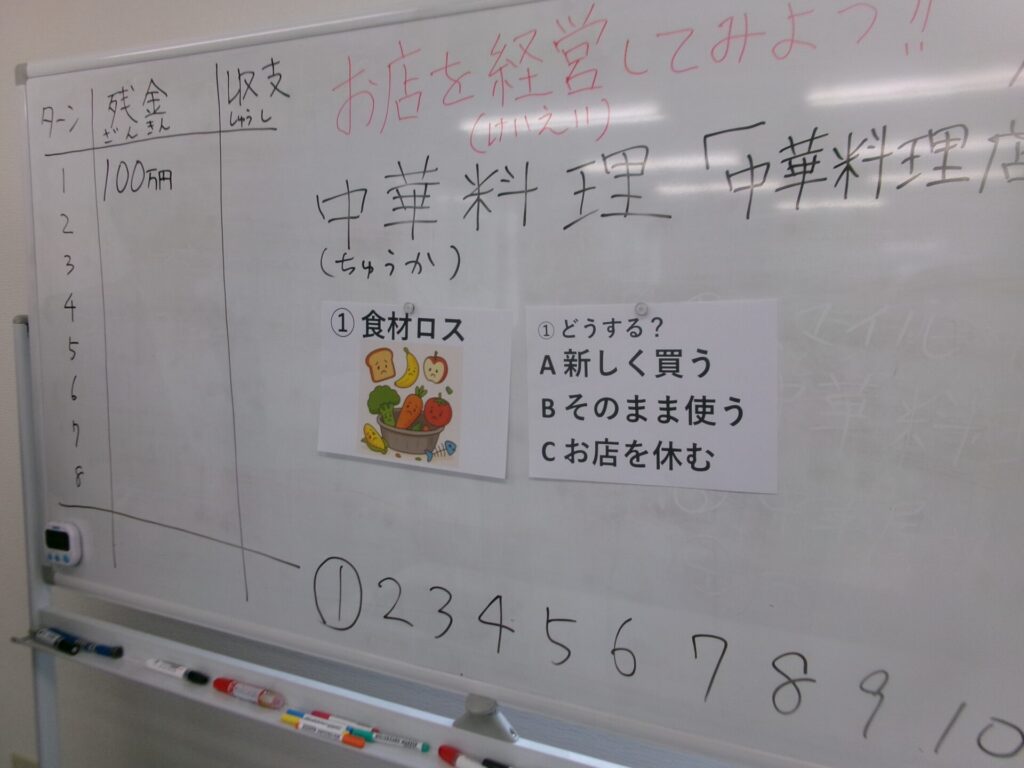 お店を経営してみよう!!
(けいえい)
ターン 残金 収支
ざんきん しゅうし
1 100万円
2
3
4
5
6
7
8
中華料理「中華料理店
(ちゅうか)
① 食材ロス
① どうする？
A 新しく買う
B そのまま使う
C お店を休む
① 2 3 4 5 6 7 8 9 10